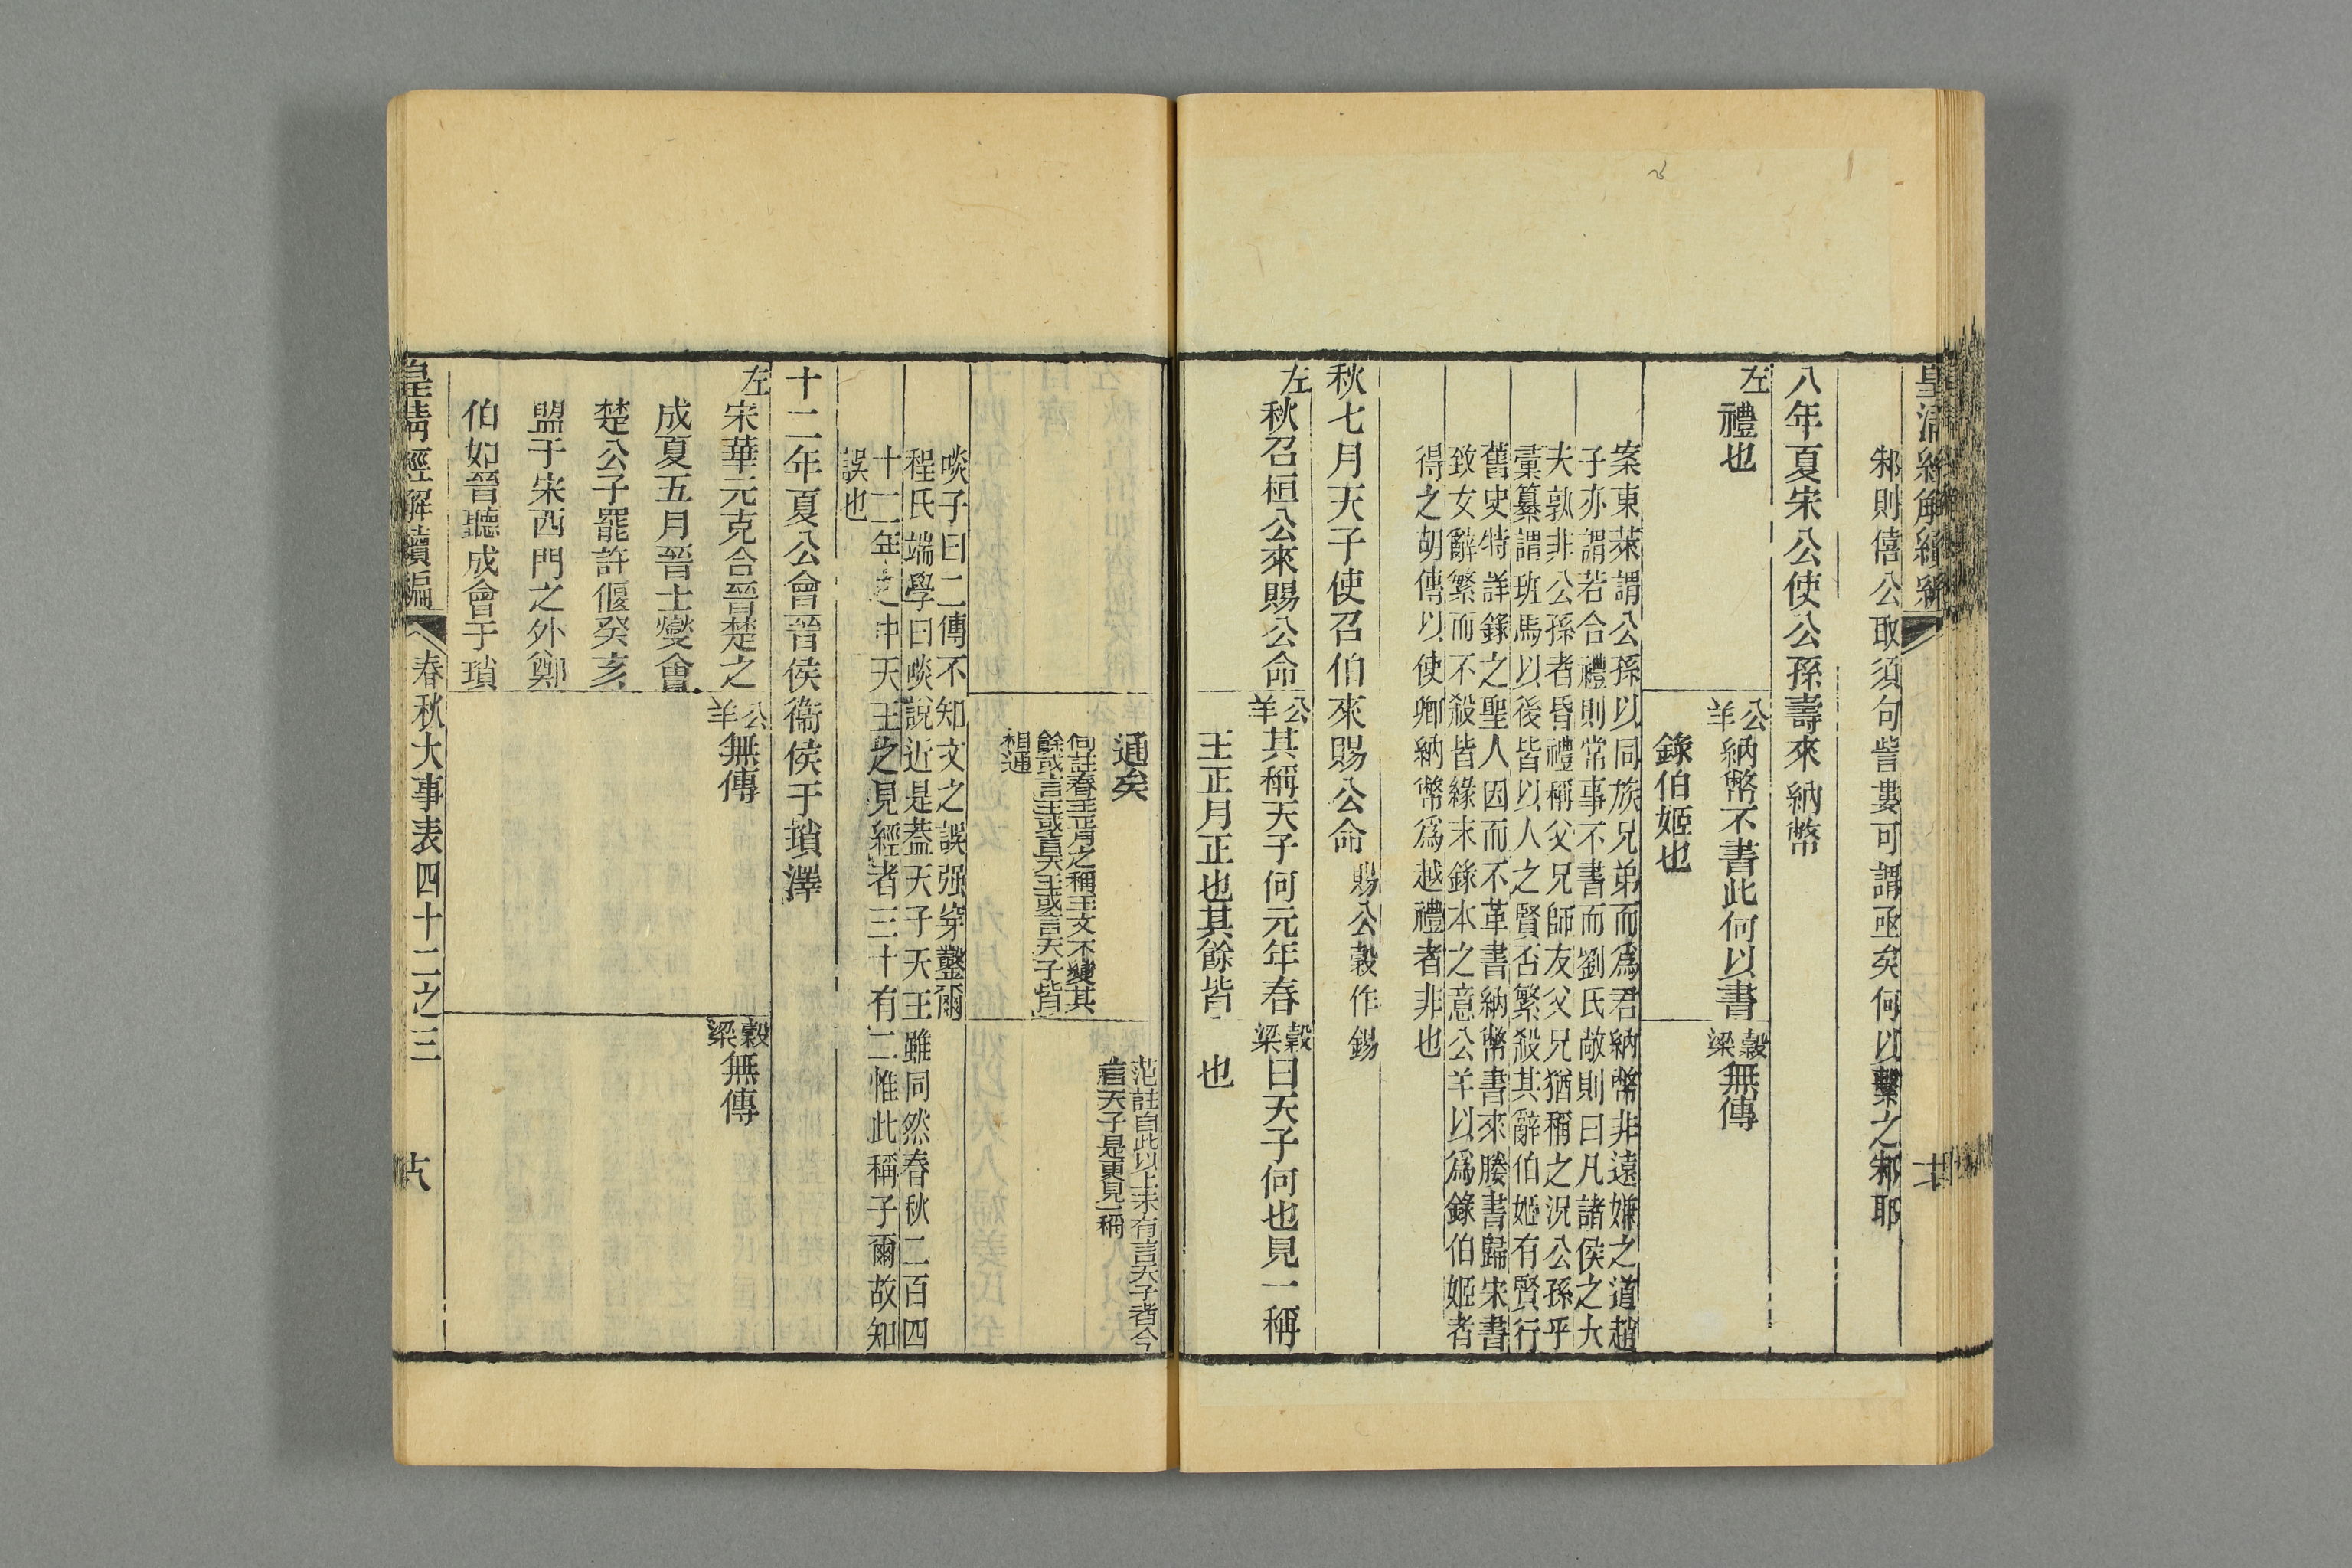 皇清經解續編
邾則僖公取須句訾婁可謂亟矣何以繫之邾耶
八年夏宋公使公孫壽來納幣
左禮也
公羊納幣不書此何以書
錄伯姬也
穀梁無傳
案東萊謂公孫以同族兄弟而爲君納幣非遠嫌之道趙
子亦謂若合禮則常事不書而劉氏敞則曰凡諸侯之大
夫孰非公孫者昏禮稱父兄師友父兄猶稱之況公孫乎
彙纂謂班馬以後皆以人之賢否繁殺其辭伯姬有賢行
舊史特詳錄之聖人因而不革書納幣書來媵書歸宋書
致女辭繁而不殺皆緣末錄本之意公羊以爲錄伯姬者
得之胡傳以使卿納幣爲越禮者非也
秋七月天子使召伯來賜公命 賜公穀作錫
左秋召桓公來賜公命
公羊其稱天子何元年春
王正月正也其餘皆
穀梁曰天子何也見一稱
也
通矣
何註春王正月之稱王文不變其
餘或言王或言天王或言天子皆
相通
范註自此以上未有言天子者今
言天子是更見一稱
啖子曰二傳不知文之誤强穿鑿爾
程氏端學曰啖說近是葢天子天王雖同然春秋二百四
十二年之中天王之見經者三十有二惟此稱子爾故知
誤也
十二年夏公會晉侯衞侯于瑣澤
左宋華元克合晉楚之
成夏五月晉士燮會
楚公子罷許偃癸亥
盟于宋西門之外鄭
伯如晉聽成會于瑣
公羊無傳
穀梁無傳
皇清經解續編
春秋大事表四十二之三
大